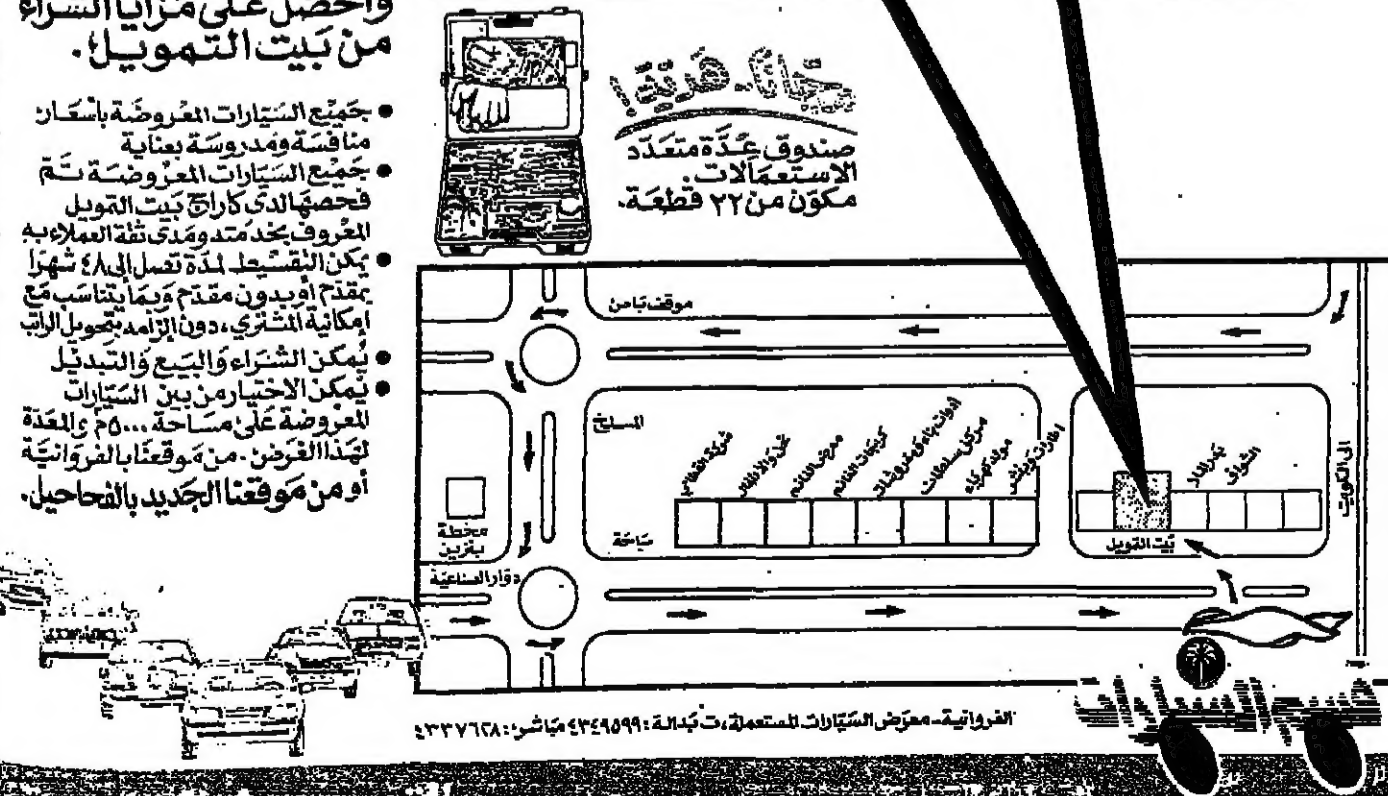 واحصل على مزايا الشراء
من بَيت التمويل؛.
• جَميْع السَيّارات المعْروضَة بأسْعَار
منافسَة ومَدروسَة بعناية
• جَميْع السَيّارات المعْروضَة تَم
فحصهَا لدى كاراج بَيت التمويل
المعْروف بخدمته ومَدى ثقة العملاء به
• يمكن التقسيط لمدّة تصل إلى ٤٨ شهرًا
بمقدّم أو بدون مقدّم وَبمَا يتناسَب مَع
امكانية المشتري، دون إلزامه بتحويل الراتب
• يُمكن الشراء وَالبَيع وَالتبديل
• يُمكن الاختيار من بين السَيّارات
المعْروضة عَلى مسَاحة ٥٠٠٠م والمعَدّة
لهَذا الغَرض. من مَوقعنَا بالفروانيَة
أو من مَوقعنا الجَديد بالفحاحيل.
مجاناً.. هَديَة!
صندوق عدّة متعَدّد
الاستعمَالات.
مكوّن من ٢٢ قطعَة.
موقف بَاص
المسلخ
شركة القطامي
معرض الغانم
كرينات الغانم
مولد كهرباء
الشواف
الى الكويت
سَاحَة
بَيت التمويل
محطة
بنزين
دوّار الصناعيَة
الفروانية - معرَض السَيّارات المستعملة، ت بَدالة: ٤٣٤٩٥٩٩ مبَاشر: ٤٣٣٧٦٢٨